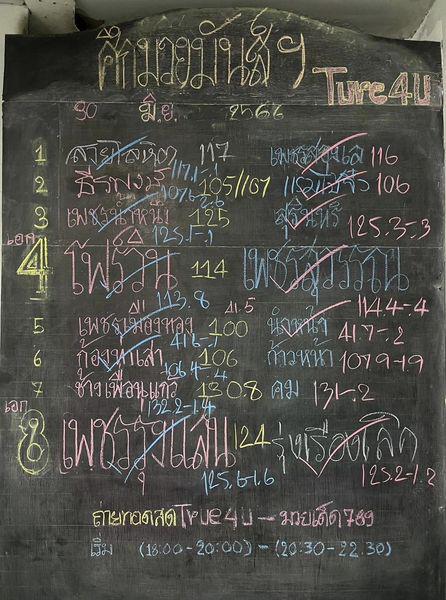 ศึกมวยมันส์ๆ
Ture4U
มิ.ย. 2566
1 สายโลหิต 117 116
2 ธีรพงษ์ 105/107 106
117.1-.1
107.6-2.6
3 เพชรน้ำหนึ่ง 125 สุรินทร์ 125.3-.3
125.1-.1
เอก
4 ไฟร้อน 114 เพชรสุวรรณ
113.8 114.4-.4
41.5
5 เพชรเมืองทอง 100 นำหน้า 41.7-.2
6 106 ก้าวหน้า 107.9-1.9
106.4-.4
7 ช้างเผือน 130.8 คม 131-.2
132.2-1.4
เอก
8 เพชรรุ่งแสน 124 รุ่งเรืองเลิศ
125.6-1.6 125.2-1.2
ถ่ายทอดสดTrue4U - มวยเด็ด789
เริ่ม (18:00-20:00) - (20:30-22.30)